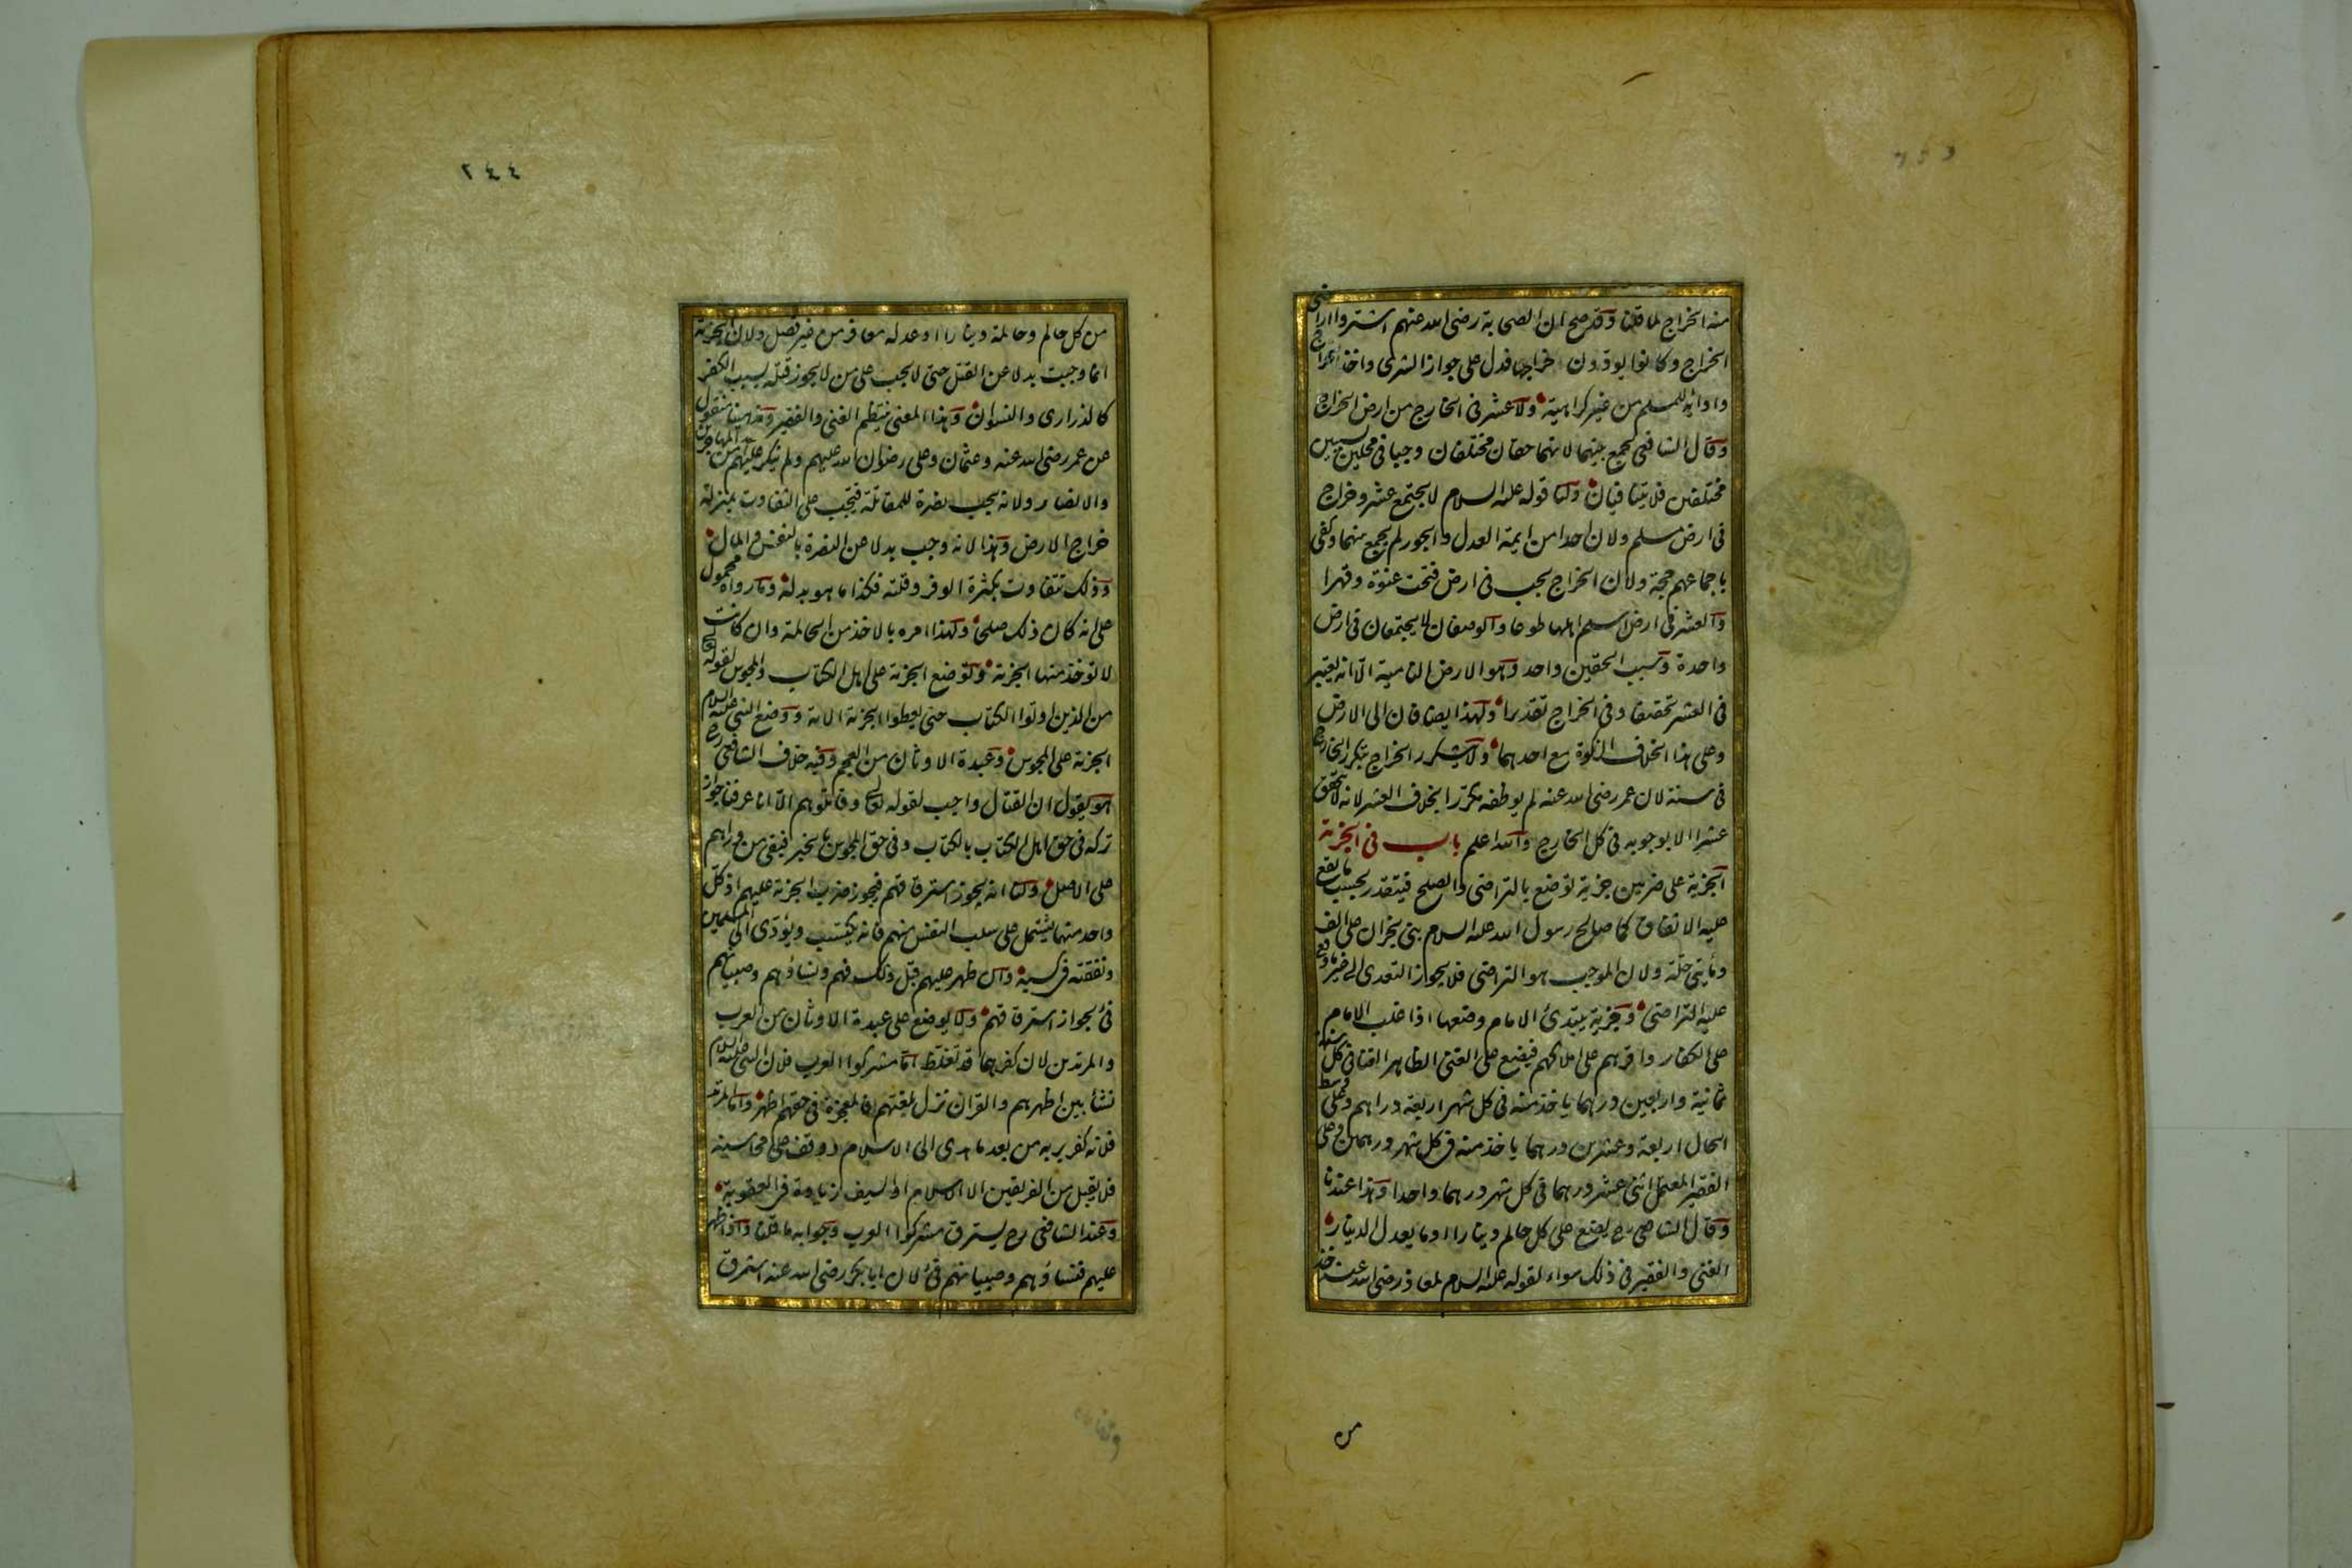 منه الخراج لما قلنا وقد صح ان الصحابة رضى الله عنهم اشتروا اراضى
الخراج وكانوا يودون خراجها فدل على جواز الشرى واخذ الخراج
وادائه للمسلم من غير كراهية ولا عشر فى الخارج من ارض الخراج
وقال الشافعى يجمع بينهما لانهما حقان مختلفان وجبا فى محلين بسببين
مختلفين فلا يتنافيان ولنا قوله عليه السلام لا يجتمع عشر وخراج
فى ارض مسلم ولان احدا من ايمة العدل والجور لم يجمع بينهما وكفى
باجماعهم حجة ولان الخراج يجب فى ارض فتحت عنوة وقهرا
والعشر فى ارض اسلم اهلها طوعا والوصفان لا يجتمعان فى ارض
واحدة وسبب الحقين واحد وهو الارض النامية الا انه يعتبر
فى العشر تحقيقا وفى الخراج تقديرا ولهذا يضافان الى الارض
وعلى هذا الخلاف الزكوة مع احدهما ولا يتكرر الخراج بتكرر الخارج
فى سنة لان عمر رضى الله عنه لم يوظفه مكررا بخلاف العشر لانه لا يتحقق
عشرا الا بوجوبه فى كل الخارج والله اعلم باب فى الجزية
الجزية على ضربين جزية توضع بالتراضى والصلح فيتقدر بحسب ما يقع
عليه الاتفاق كما صالح رسول الله عليه السلام بنى نجران على الف
ومايتى حلة ولان الموجب هو التراضى فلا يجوز التعدى الى غير ما وقع
عليه التراضى وجزية يبتدئ الامام وضعها اذا غلب الامام
على الكفار واقرهم على املاكهم فيضع على الغنى الظاهر الغنا فى كل سنة
ثمانية واربعين درهما ياخذ منه فى كل شهر اربعة دراهم وعلى وسط
الحال اربعة وعشرين درهما ياخذ منه فى كل شهر درهمين وعلى
الفقير المعتمل اثنى عشر درهما فى كل شهر درهما واحدا وهذا عندنا
وقال الشافعى رح يضع على كل حالم دينارا او ما يعدل الدينار
الغنى والفقير فى ذلك سواء لقوله عليه السلام لمعاذ رضى الله عنه خذ
من
٢٤٤
من كل حالم وحالمة دينارا او عدله معافر من غير فصل ولان الجزية
انما وجبت بدلا عن القتل حتى لا يجب على من لا يجوز قتله بسبب الكفر
كالذرارى والنسوان وهذا المعنى ينتظم الغنى والفقير ومذهبنا منقول
عن عمر رضى الله عنه وعثمان وعلى رضوان الله عليهم ولم ينكر عليهم من المهاجرين
والانصار ولانه يجب نصرة للمقاتلة فيجب على التفاوت بمنزلة
خراج الارض وهذا لانه وجب بدلا عن النصرة بالنفس والمال
وذلك تتفاوت بكثرة الوفر وقلته فكذا ما هو بدله وما رواه محمول
على انه كان ذلك صلحا ولهذا امره بالاخذ من الحالمة وان كانت
لا توخذ منها الجزية وتوضع الجزية على اهل الكتاب والمجوس لقوله تعالى
من الذين اوتوا الكتاب حتى يعطوا الجزية الاية ووضع النبى عليه السلام
الجزية على المجوس وعبدة الاوثان من العجم وفيه خلاف الشافعى رح
هو يقول ان القتال واجب لقوله تعالى وقاتلوهم الا انا عرفنا جواز
تركه فى حق اهل الكتاب بالكتاب وفى حق المجوس بالخبر فبقى من وراهم
على الاصل ولنا انه يجوز استرقاقهم فيجوز ضرب الجزية عليهم اذ كل
واحد منهما يشتمل على سلب النفس منهم فانه يكتسب ويؤدى الى المسلمين
ونفقته فى كسبه وان ظهر عليهم قبل ذلك فهم ونساؤهم وصبيانهم
فئ لجواز استرقاقهم ولا يوضع على عبدة الاوثان من العرب
والمرتدين لان كفرهما قد تغلظ اما مشركوا العرب فلان النبى عليه السلام
نشأ بين اظهرهم والقران نزل بلغتهم فالمعجزة فى حقهم اظهر واما المرتد
فلانه كفر بربه من بعد ما هدى الى الاسلام ووقف على محاسنه
فلا يقبل من الفريقين الا الاسلام او السيف زيادة فى العقوبة
وعند الشافعى رح يسترق مشركوا العرب وجوابه ما قلنا واذا ظهر
عليهم فنساؤهم وصبيانهم فئ لان ابا بكر رضى الله عنه استرق